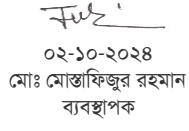 ০২-১০-২০২৪
মোঃ মোস্তাফিজুর রহমান
ব্যবস্থাপক